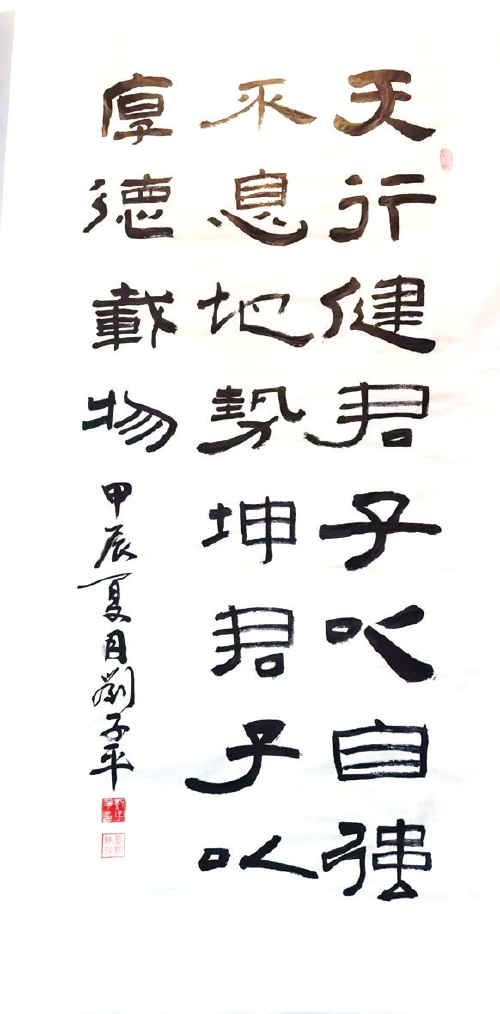 天行健君子以自强
不息地势坤君子以
厚德載物
甲辰夏月劉子平